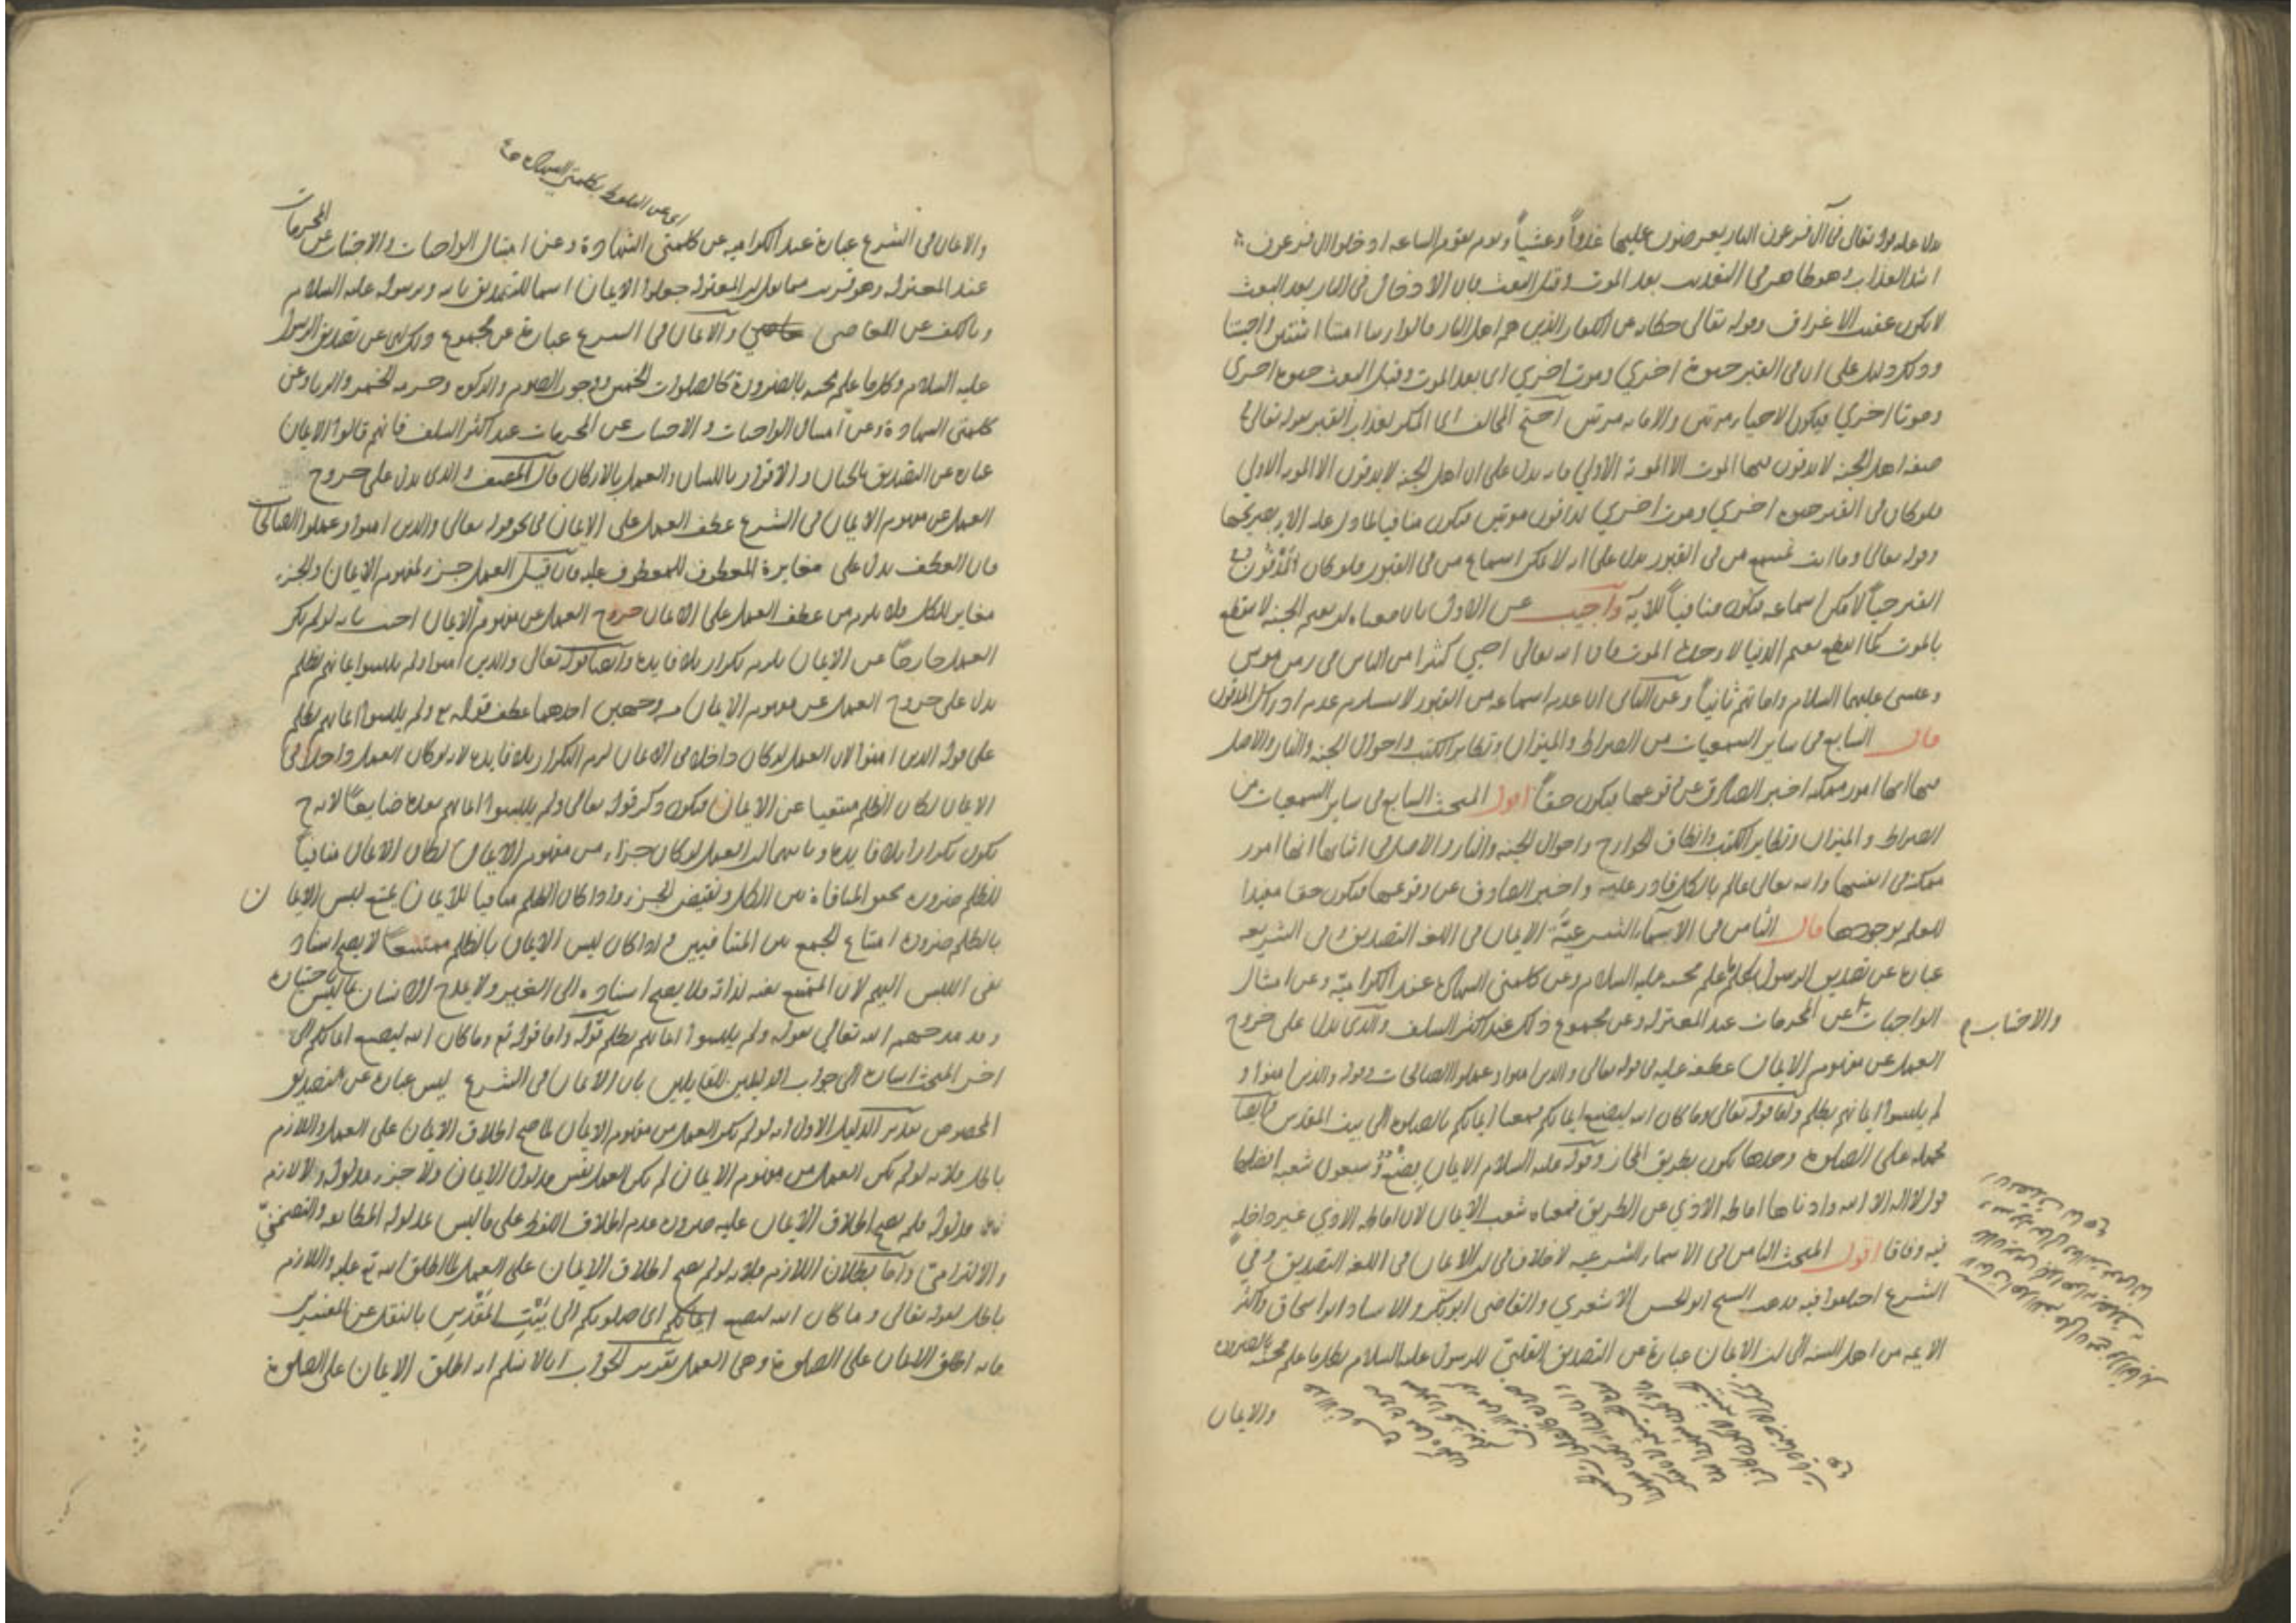 يدل عليه قوله تعالى في آل فرعون النار يعرضون عليها غدواً وعشياً ويوم يقوم الساعة ادخلوا ال فرعون
اشد العذاب وهو ظاهر في التعذيب بعد الموت وقبل البعث فان الادخال في النار بعد البعث
لا يكون عقيب الاغراق وقوله تعالى حكاية عن الكفار الذين هم اهل النار قالوا ربنا امتنا اثنتين واحييتنا
وذلك دليل على ان في القبر حيوة اخري وموت اخري اي بعد الموت وقبل البعث حيوة اخرى
وموتا اخري فيكون الاحيا مرتين والاماته مرتين احتج المخالف اي المنكر لعذاب القبر بقوله تعالى
صفة اهل الجنة لا يذوقون فيها الموت الا الموتة الأولي فانه يدل على ان اهل الجنة لا يذوقون الا الموتة الاولى
فلو كان في القبر حيوة اخري وموت اخري لذاقوا موتتين فيكون منافيا لما دل عليه الآية بصريحها
وقوله تعالى وما انت بمسمع من في القبور يدل على انه لا يمكن اسماع من في القبور فلو كان المدفون في
القبر حياً لامكن اسماعه فيكون منافياً للآية وأجيب عن الاول بان معناه ان نعيم الجنة لا ينقطع
بالموت كما انقطع نعيم الدنيا لا وحدة الموت فان الله تعالى احيى كثيرا من الناس في زمن موسى
وعيسى عليهما السلام واماتهم ثانياً وعن الثاني ان عدم اسماع من في القبور لا يستلزم عدم ادراك المدفون
قال السابع في ساير السمعيات من الصراط والميزان وتطاير الكتب واحوال الجنة والنار والاصل
فيها انها امور ممكنة اخبر الصادق عن وقوعها فيكون حقاً اقول المبحث السابع في ساير السمعيات من
الصراط والميزان وتطاير الكتب وانطاق الجوارح واحوال الجنة والنار والاصل في اثباتها انها امور
ممكنة في انفسها والله تعالى عالم بالكل قادر عليه واخبر الصادق عن وقوعها فيكون حقا مفيدا
للعلم بوجودها قال الثامن في الأسماء الشرعيّة الايمان في اللغة التصديق وفي الشريعة
عبارة عن تصديق الرسول بكل ما علم مجيئه عليه السلام وعن كلمتي الشهادة عند الكراميّة وعن امتثال
الواجبات عن المحرمات عند المعتزلة وعن مجموع ذلك عند اكثر السلف والذي يدل على خروج
والاجتناب
العمل عن مفهوم الايمان عطفه عليه في قوله تعالى والذين امنوا وعملوا الصالحات وقوله والذين امنوا و
لم يلبسوا ايمانهم بظلم واما قوله تعالى وما كان الله ليضيع ايمانكم فمعناه ايمانكم بالصلوة الى بيت المقدس وايضا
محمله على الصلوة وحدها يكون بطريق المجاز وقوله عليه السلام الايمان بضع وسبعون شعبة افضلها
قول لا اله الا الله وادناها اماطة الاذي عن الطريق فمعناه شعب الايمان لان اماطة الاذي غير داخلة
فيه وفاقا اقول المبحث الثامن في الاسماء الشرعيه لا خلاف في ان الايمان في اللغة التصديق وفي
الشرع اختلفوا فيه فذهب الشيخ ابو الحسن الاشعري والقاضي ابو بكر والاستاد ابو اسحاق واكثر
الايمة من اهل السنة الى ان الايمان عبارة عن التصديق القلبي للرسول عليه السلام بكل ما علم مجيئه بالضرورة
والايمان
اي عن التلفظ بكلمتي الشهادة
والايمان في الشرع عبارة عند الكراميه عن كلمتي الشهادة وعن امتثال الواجبات والاجتناب عن المحرمات
عند المعتزلة وهو قريب مما نقل ان المعتزلة جعلوا الايمان اسما للتصديق بالله وبرسوله عليه السلام
وبالكف عن المعاصي والايمان في الشرع عبارة عن مجموع ذلك اي عن تصديق الرسول
عليه السلام بكل ما علم مجيئه بالضرورة كالصلوات الخمس ووجوب الصوم والزكوة وحرمة الخمر والربا وعن
كلمتي الشهادة وعن امتثال الواجبات والاجتناب عن المحرمات عند اكثر السلف فانهم قالوا الايمان
عبارة عن التصديق بالجنان والاقرار باللسان والعمل بالاركان قال المصنف والذي يدل على خروج
العمل عن مفهوم الايمان في الشرع عطف العمل على الايمان في نحو قوله تعالى والذين امنوا وعملوا الصالحات
فان العطف يدل على مغايرة المعطوف للمعطوف عليه فان قيل العمل جزء لمفهوم الايمان والجزء
مغاير للكل فلا يلزم من عطف العمل على الايمان خروج العمل عن مفهوم الايمان اجيب بانه لو لم يكن
العمل خارجاً عن الايمان يلزم تكرار بلا فايدة وايضا قوله تعالى والذين امنوا ولم يلبسوا ايمانهم بظلم
يدل على خروج العمل عن مفهوم الايمان من وجهين احدهما عطف قوله تع ولم يلبسوا ايمانهم بظلم
على قوله الذين امنوا لان العمل لو كان داخلا في الايمان لزم التكرار بلا فايدة لانه لو كان العمل داخلا في
الايمان لكان الظلم منتفيا عن الايمان فيكون ذكر قوله تعالى ولم يلبسوا ايمانهم بعده ضايعاً لانه ح
يكون تكرارا بلا فايدة وثانيهما ان العمل لو كان جزءا من مفهوم الايمان لكان الايمان منافياً
للظلم ضرورة تحقق المنافاة بين الكل ونقيض الجزء واذا كان الظلم منافيا للايمان يمتنع لبس الايمان
بالظلم ضرورة امتناع الجمع بين المتنافيين واذا كان لبس الايمان بالظلم ممتنعاً لا يصح اسناد
نفي اللبس اليهم لان الممتنع نفيه لذاته فلا يصح اسناده الى الغير ولا يمدح الانسان بما ليس باختياره
وقد مدحهم الله تعالى بقوله ولم يلبسوا ايمانهم بظلم قوله واما قوله تع وما كان الله ليضيع ايمانكم الى
اخر المبحث اشارة الى جواب الدليلين للقايلين بان الايمان في الشرع ليس عبارة عن التصديق
المخصوص تقرير الدليل الاول انه لو لم يكن العمل من مفهوم الايمان لما صح اطلاق الايمان على العمل واللازم
باطل فلانه لو لم يكن العمل من مفهوم الايمان لم يكن العمل نفس مدلول الايمان ولا جزء مدلوله ولا لازم
مدلوله فلم يصح اطلاق الايمان عليه ضرورة عدم اطلاق اللفظ على ما ليس مدلوله المطابقة والتضمني
والالتزامي واما بطلان اللازم فلانه لو لم يصح اطلاق الايمان على العمل لما اطلق الله تع عليه واللازم
باطل لقوله تعالى وما كان الله ليضيع ايمانكم اي صلوتكم الى بَيْتِ المَقْدِسِ بالنقل عن المفسرين
فانه اطلق الايمان على الصلوة وهي العمل تقرير الجواب انا لا نسلم انه اطلق الايمان على الصلوة